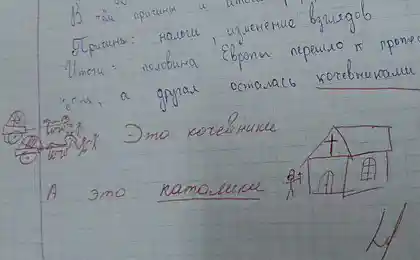 В чём причины и итоги
Причины: налоги, изменение взглядов
Итоги: половина Европы перешло к проте
а другая осталась кочевниками
Это кочевники
А это католики